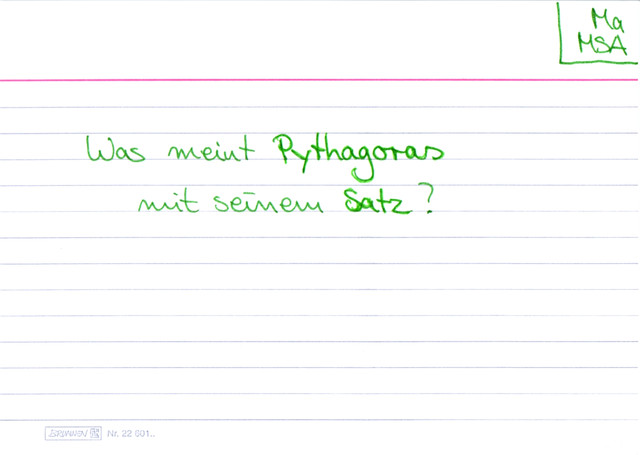 Ma
MSA
Was meint Pythagoras
mit seinem Satz?
BRUNNEN Nr. 22 601..